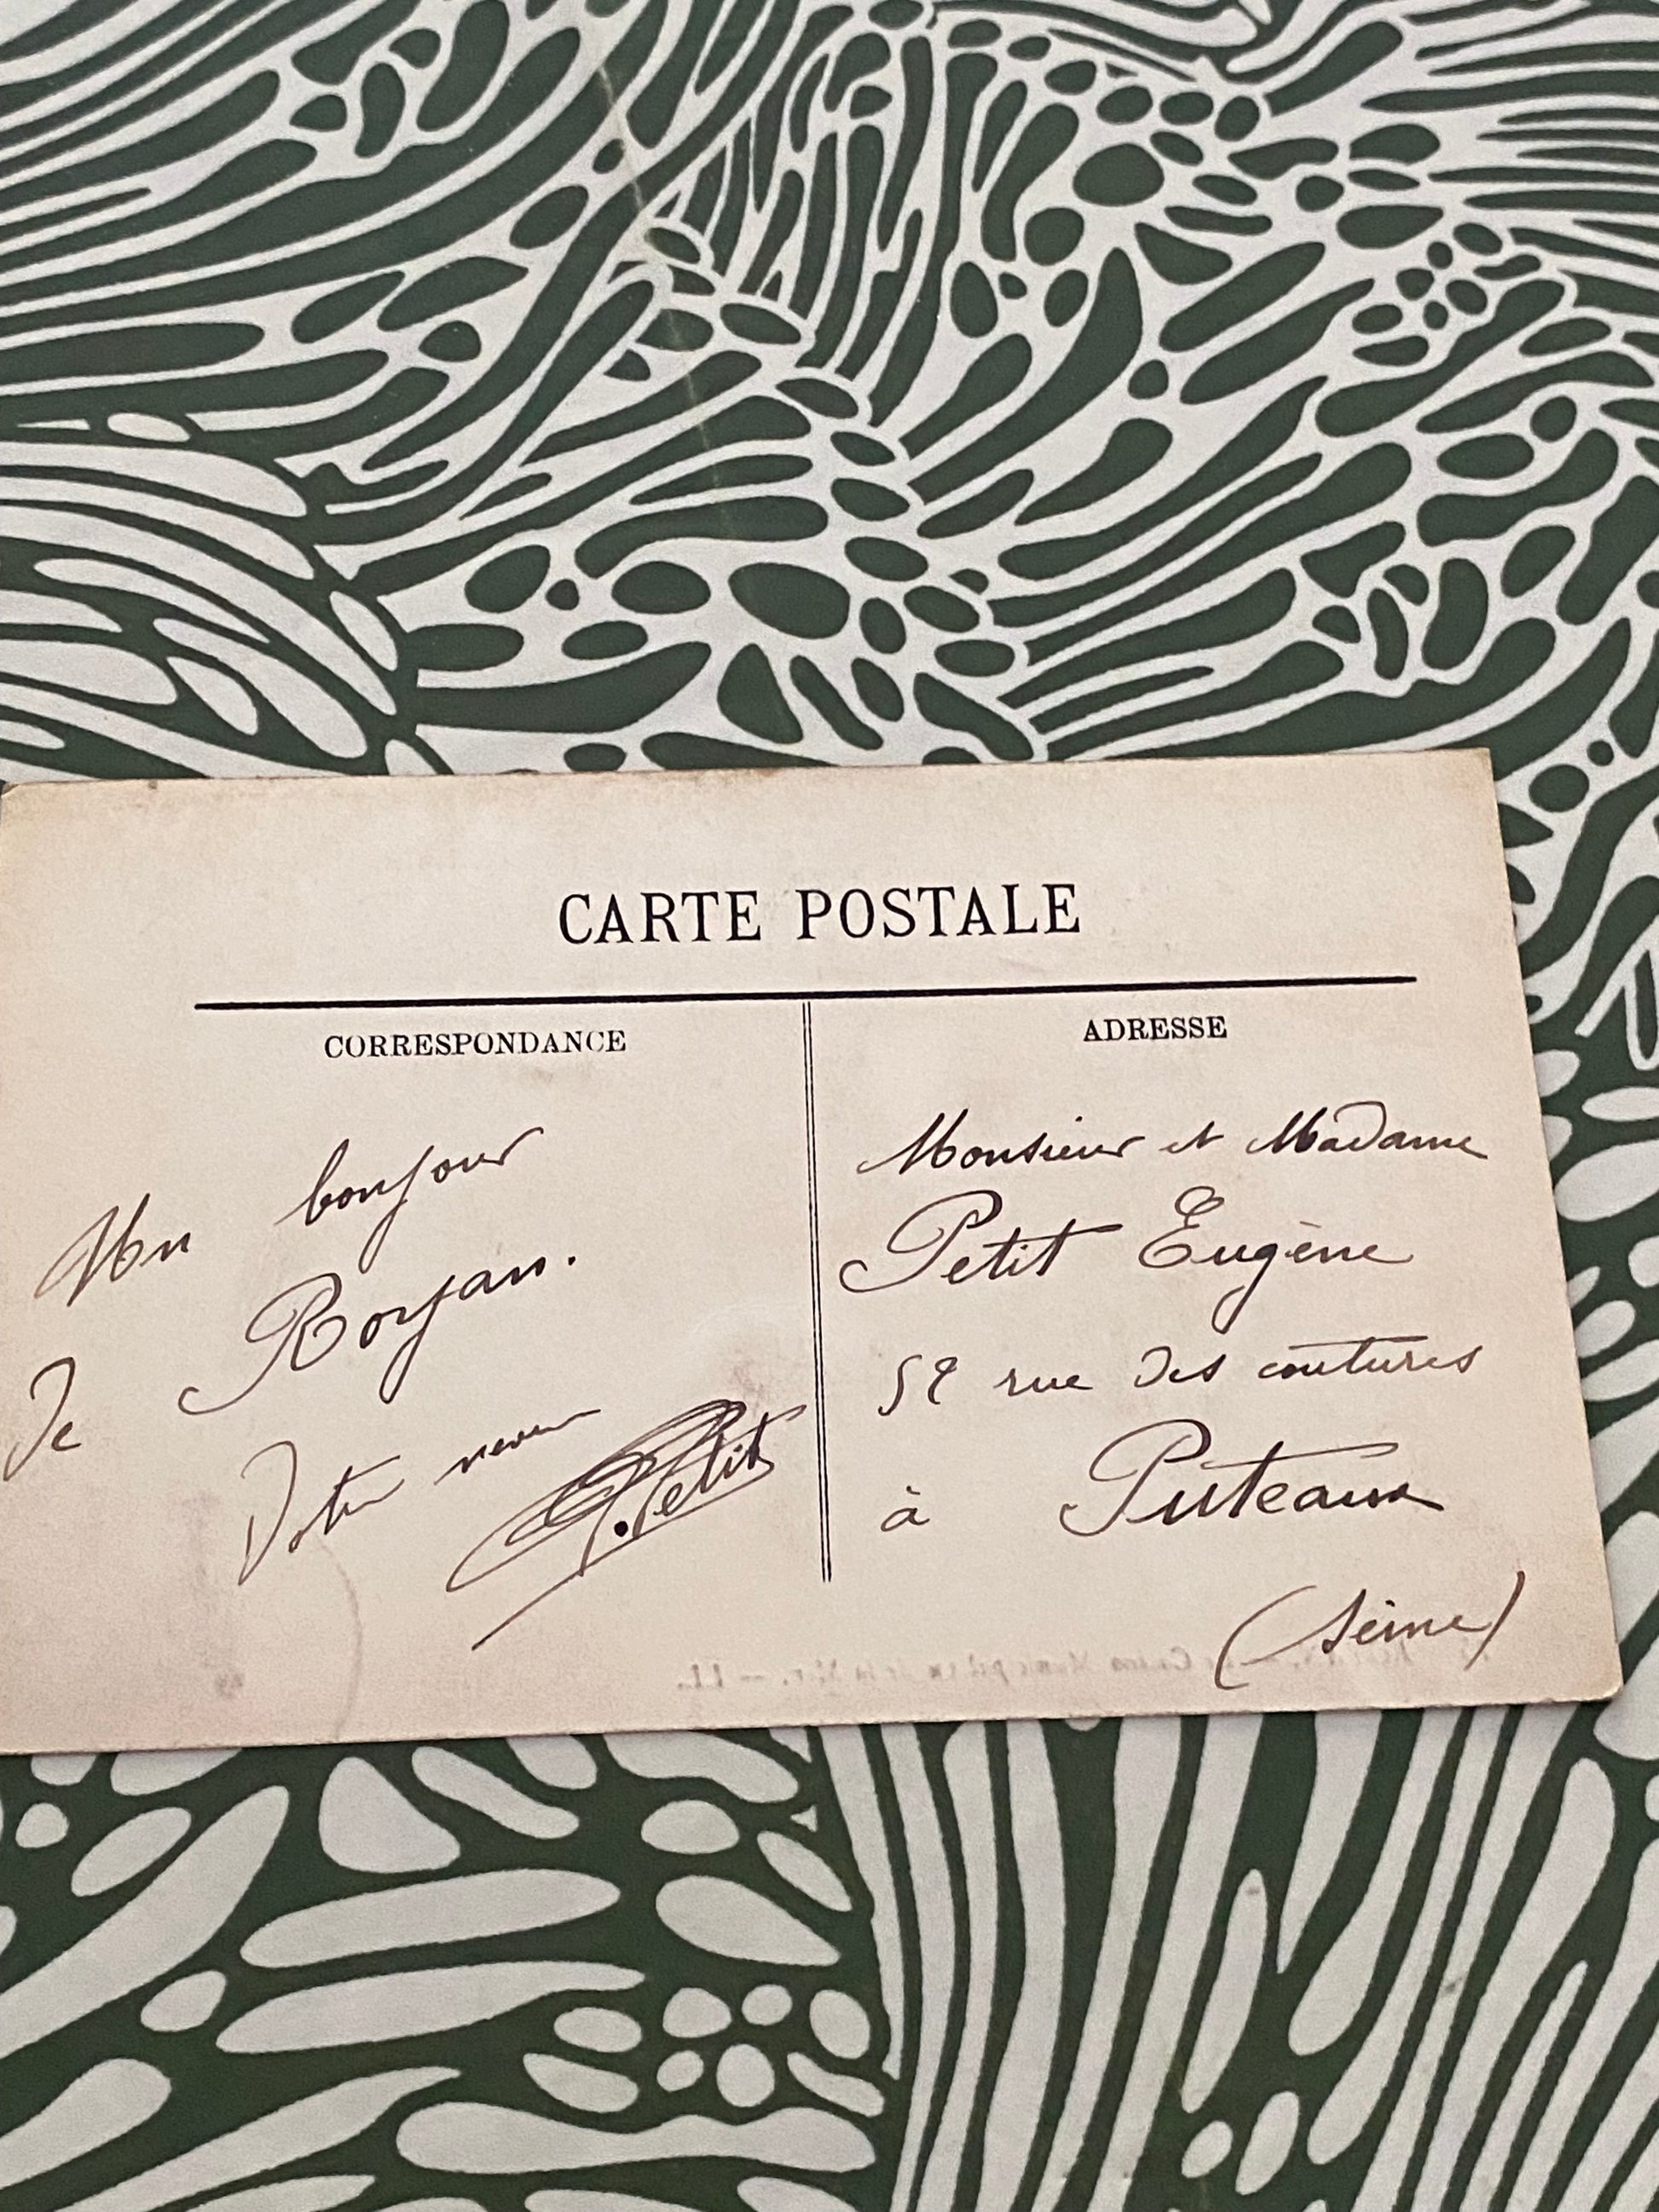 CARTE POSTALE
CORRESPONDANCE
Un bonjour
de Royan.
Votre neveu
Petit
ADRESSE
Monsieur et Madame
Petit Eugène
52 rue des coutures
à Puteaux
(Seine)